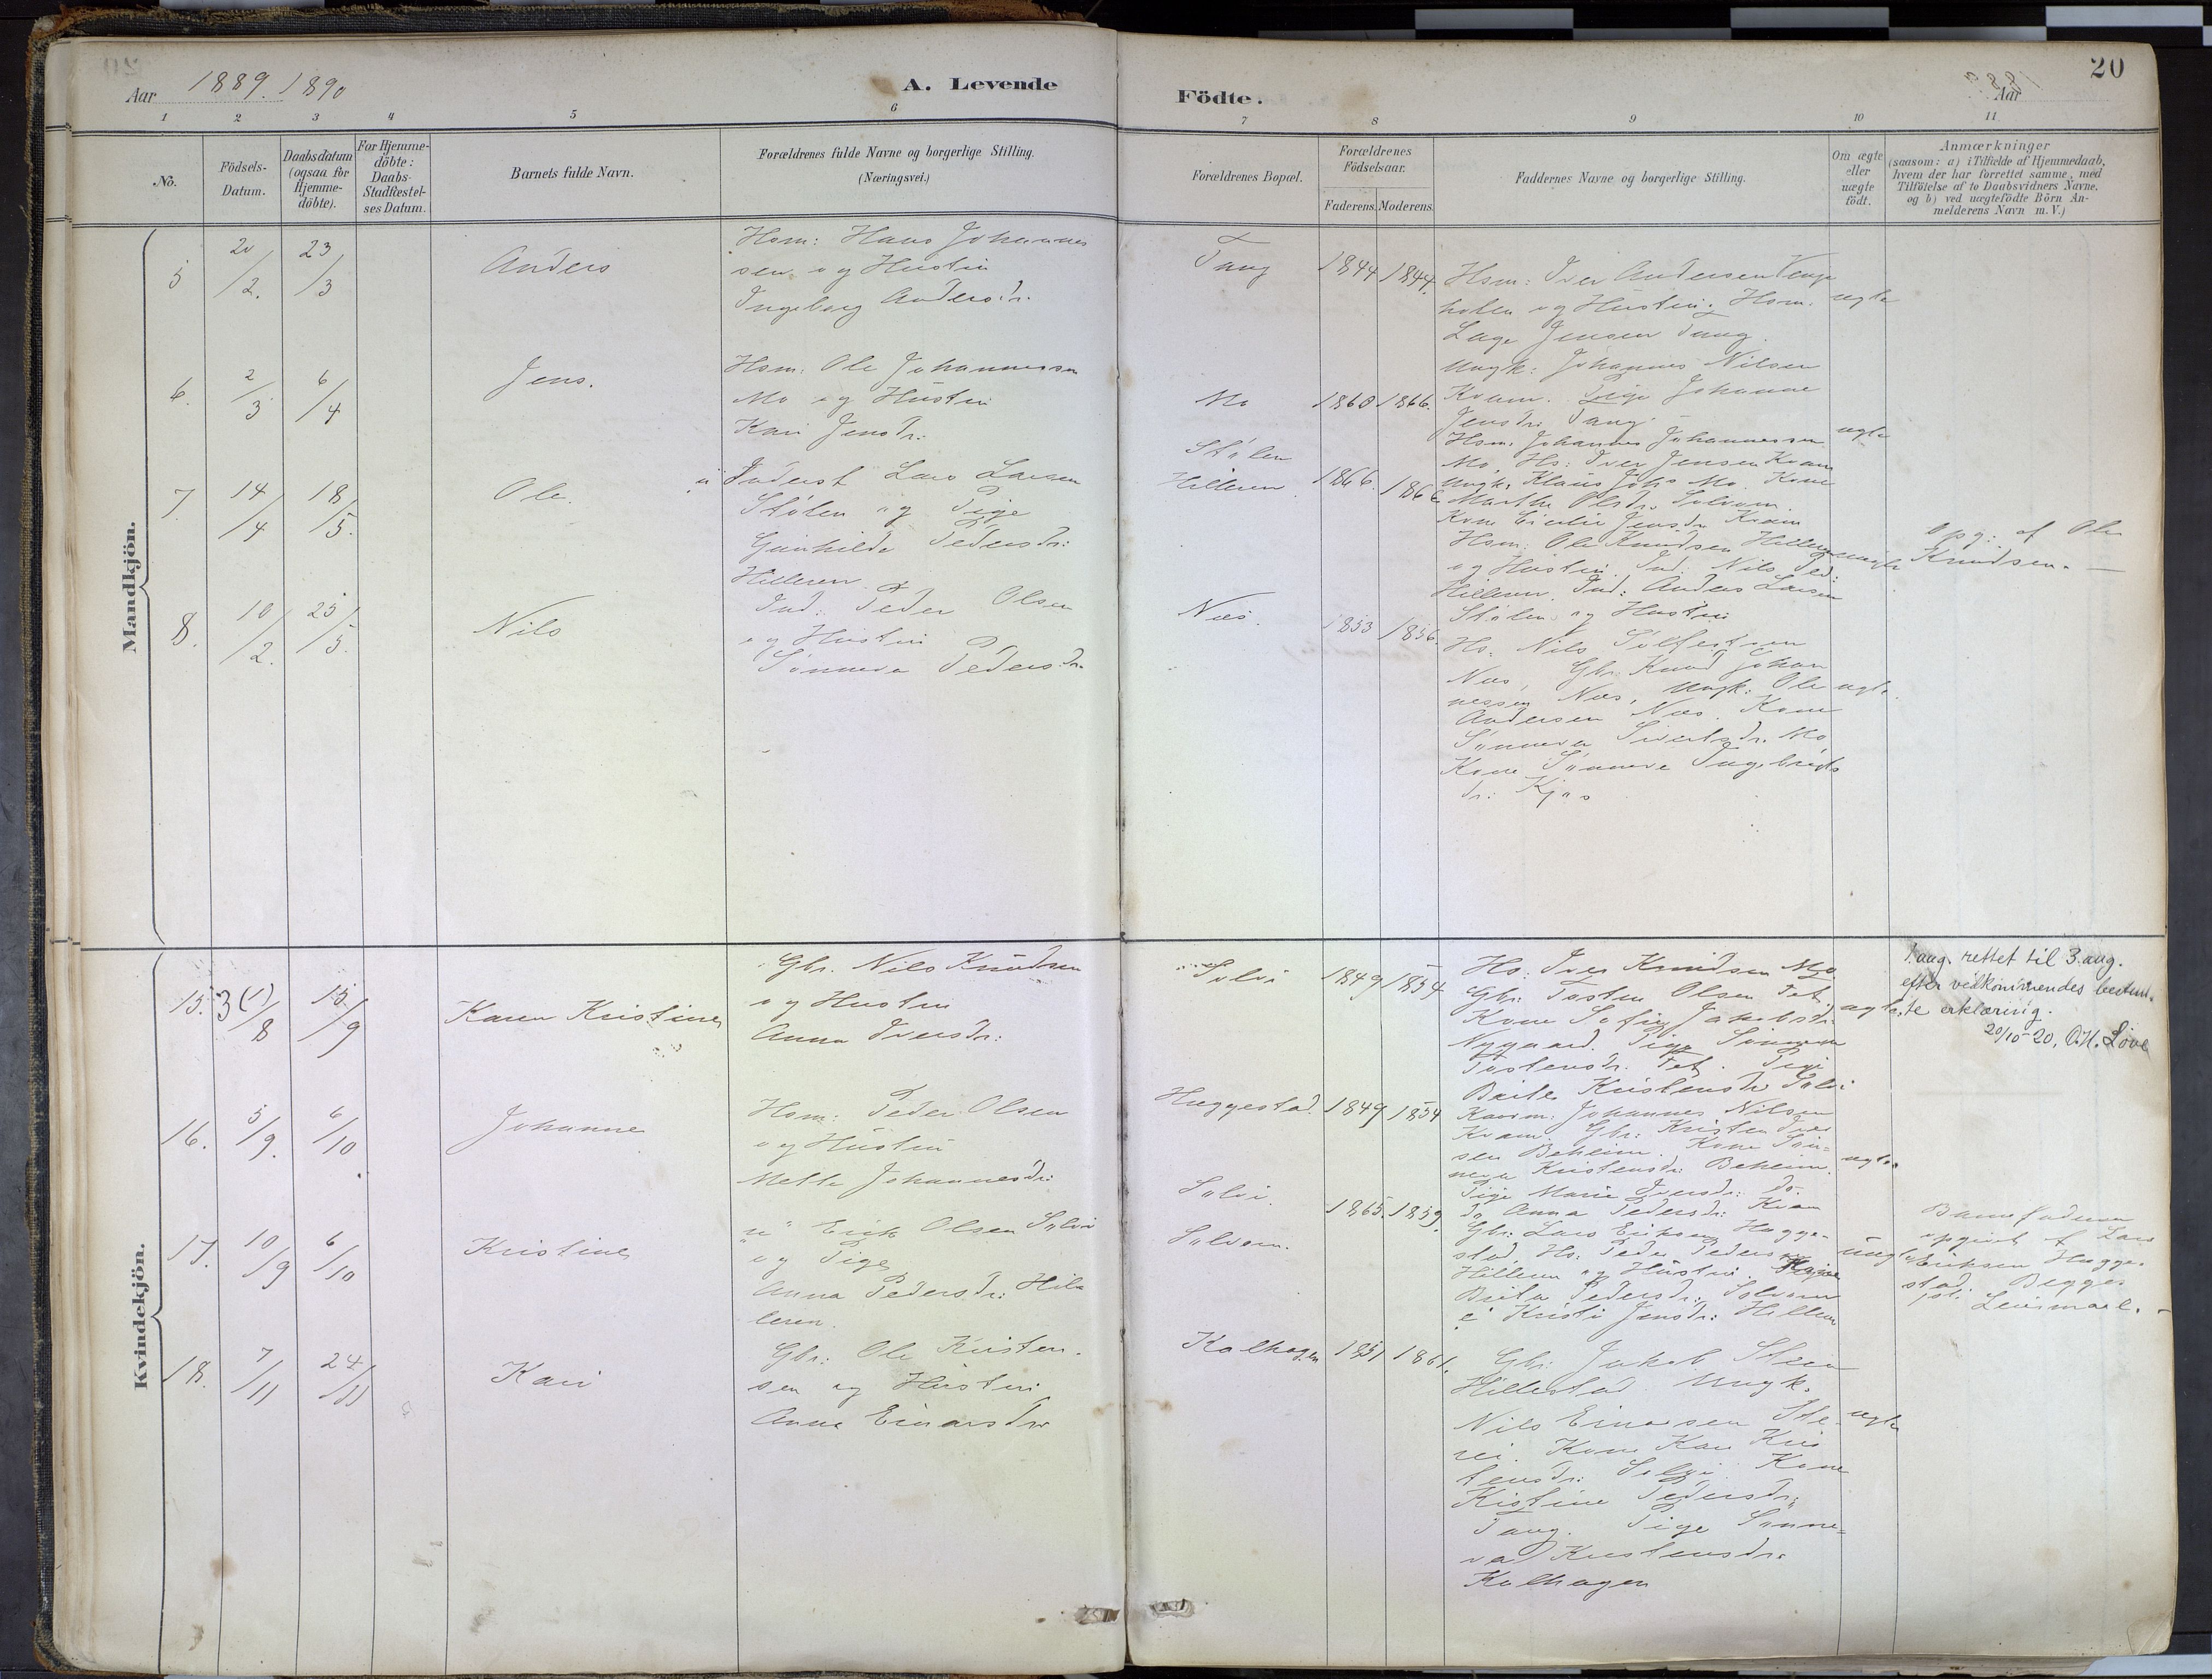 Aar 1889. 1890
A. Levende
Födte.
Aar
20
1 2 3 4 5 6 7 8 9 10 11
No.
Födsels-
Datum.
Daabsdatum
(ogsaa for
Hjemme-
döbte).
For Hjemme-
döbte:
Daabs-
Stadfæstel-
ses Datum.
Barnets fulde Navn.
Forældrenes fulde Navne og borgerlige Stilling.
(Næringsvei.)
Forældrenes Bopæl.
Forældrenes
Födselsaar.
Faderens. Moderens.
Faddernes Navne og borgerlige Stilling.
Om ægte
eller
uægte
födt.
Anmærkninger
(saasom: a) i Tilfælde af Hjemmedaab,
hvem der har forrettet samme, med
Tilföielse af to Daabsvidners Navne,
og b) ved uægtefödte Börn An-
melderens Navn m. V.)
Mandkjön.
5 20/2. 23/3 Anders
Hsm: Hans Johannes
sen og Hustru
Ingeborg Andersdr.
Tang 1844 1844.
Hsm: Iver Andersen
holen og Hustru. Hsm.
Lage Jensen Tang.
ægte
6. 2/3 6/4 Jens.
Hsm: Ole Johannessen
Mo og Hustru
Kari Jensdr:
Mo 1860 1866.
Ungk: Johannes Nilsen
Kvam. Pige Johanne
Jensdr: Tang
Hsm: Johannes Johannessen
ægte
7. 14/4 18/5. Ole.
Inderst Lars Larsen
Stölen og Pige
Gunhilde Pedersdr:
Hilleren
Stölen
Hilleren 1866. 1866
Mo, Hs: Iver Jensen Kvam
Ungk: Klaus Johs Mo. Kone
Marthe Olsdr. Solvorn.
Kone Jensdr Kvam
Hsm: Ole Knudsen Hilleren
og Hustru. Ind: Nils Ped:
Hilleren. Ind: Anders Larsen
Stölen og Hustru
uægte
Opg: af Ole
Knudsen. —
8. 10/2. 25/5. Nils
Ind: Peder Olsen
og Hustru
Sönneva Pedersdr.
Næs. 1853 1856.
Hs: Nils
Næs, Gbr. Knud Johan
nessen Næs, Ungk: Ole
Andersen Næs. Kone
Sönneva Sivertsdr. Mo
Kone Sönneva Ingebrigts
dr: Kjös
ægte.
Kvindekjön.
15. 3 (1)/8 15/9 Karen Kristine
Gbr. Nils Knudsen
og Hustru
Anna Iversdr:
Solvi 1849 1854
Hs: Iver Knudsen Mo
Gbr: Tosten Olsen Tet.
Kone Sofie Jakobsdr.
Nygaard. Pige Sönneva
Tostensdr. Tet. Pige
Brite Kristensdr Sölvi
ægte.
1. aug. rettet til 3. aug.
efter vedkommendes bestem-
te erklæring.
20/10-20, O.H. Löve
16. 5/9. 6/10 Johanne
Hsm: Peder Olsen
og Hustru
Mette Johannesdr:
Huggestad. 1849 1854
Johannes Nilsen
Kvam. Gbr: Kristen Iver
sen Beheim. Kone Sön-
neva Kristensdr: Beheim.
Pige Marie Iversdr: do.
do Anna Pedersdr: Kvam
ægte.
17. 10/9 6/10 Kristine
Erik Olsen Sölvi
og Pige
Anna Pedersdr: Hil-
leren.
Sölvi.
Solvorn. 1865. 1859.
Gbr: Lars Eriksen Hugge-
stad, Hs: Peder Pedersen
Hilleren og Hustru. Kone
Brita Pedersdr: Solvorn
Kristi Jensdr: Hilleren
uægte
Barnefaderen
opgivet af Lars
Eriksen Hugge-
stad. Begges
1ste Leiermaal. -
18. 7/11 24/11 Kari
Gbr: Ole Kristen-
sen og Hustru
Anna Einarsdr
Kalhagen 1851 1861.
Gbr: Jakob
Hillestad. Ungk.
Nils Einarsen
Kone Kari Kris
tensdr: Solvi. Kone
Kistine Pedersdr:
Tang. Pige Sönne-
va Kristensdr.
Kalhagen
ægte